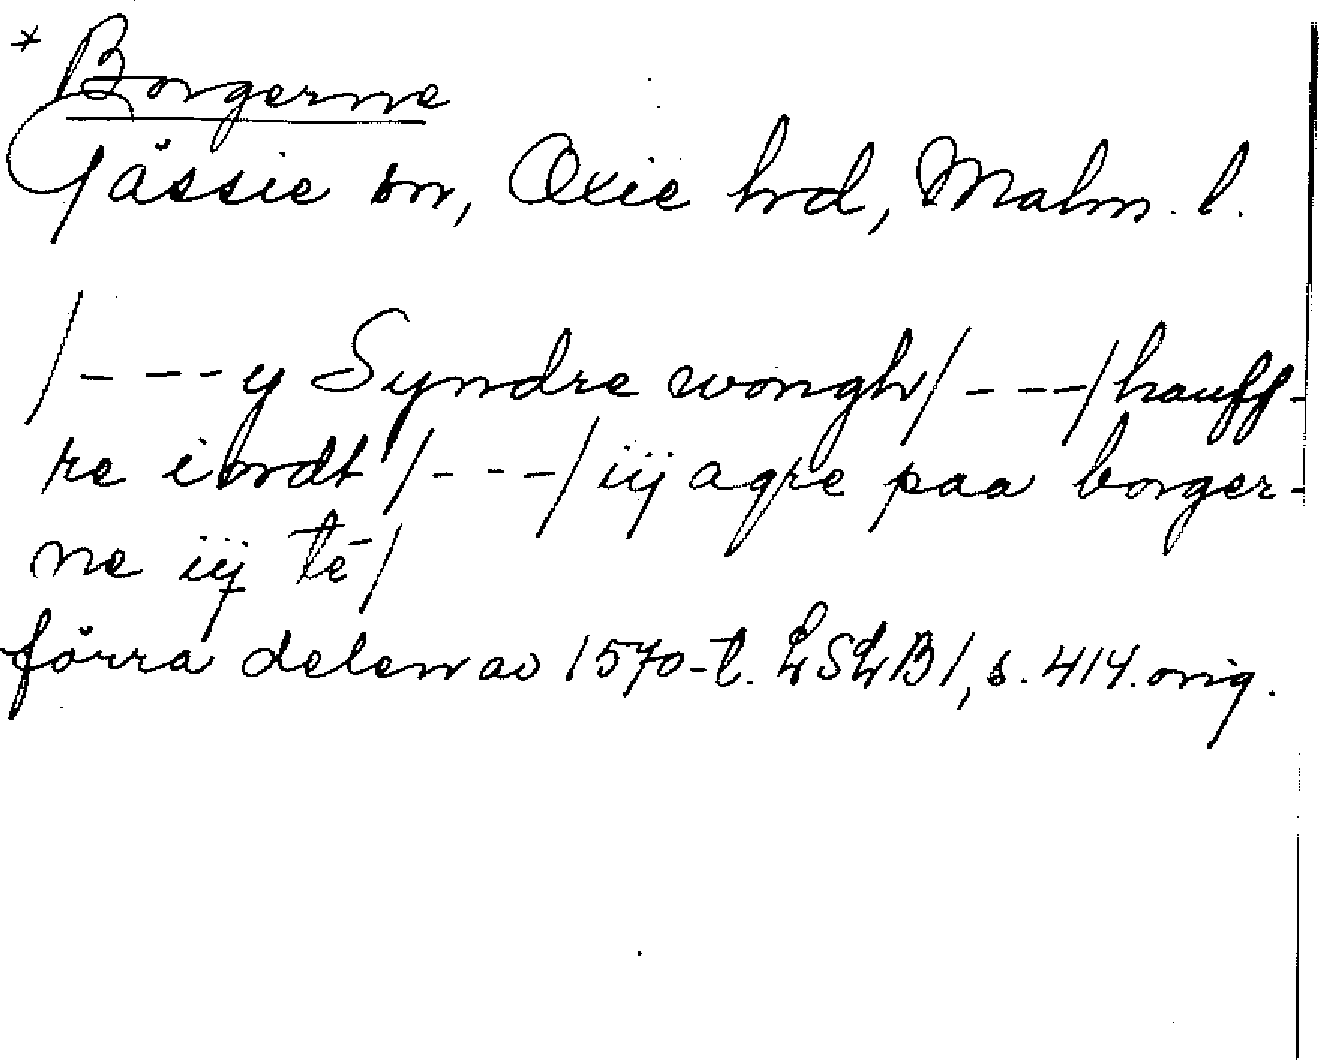 * Borgerne
Gässie sn, Oxie hrd, Malm. l.
/- - - y Syndre wongh/- - -/hauff-
re iordt/- - -/iij agre paa borger-
ne iij tē/
förra delen av 1570-t. LSLB1, s. 414. orig.